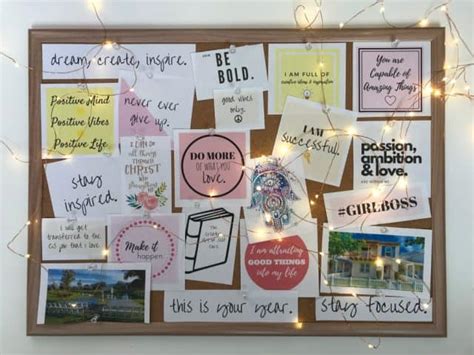 dream, create, inspire.
BE
BOLD.
I AM FULL OF
creative ideas & inspiration
You are
Capable of
Amazing Things
Positive Mind
Positive Vibes
Positive Life
never ever
give up.
good vibes
only.
I AM
successful.
passion,
ambition
& love.
I CAN DO
all things
through
CHRIST
who
strengthens
DO MORE
OF WHAT YOU
love.
stay
inspired.
#GIRLBOSS
i will get
transferred to the
that i love
Make it
happen
I am attracting
GOOD THINGS
into my life
this is your year.
stay focused.